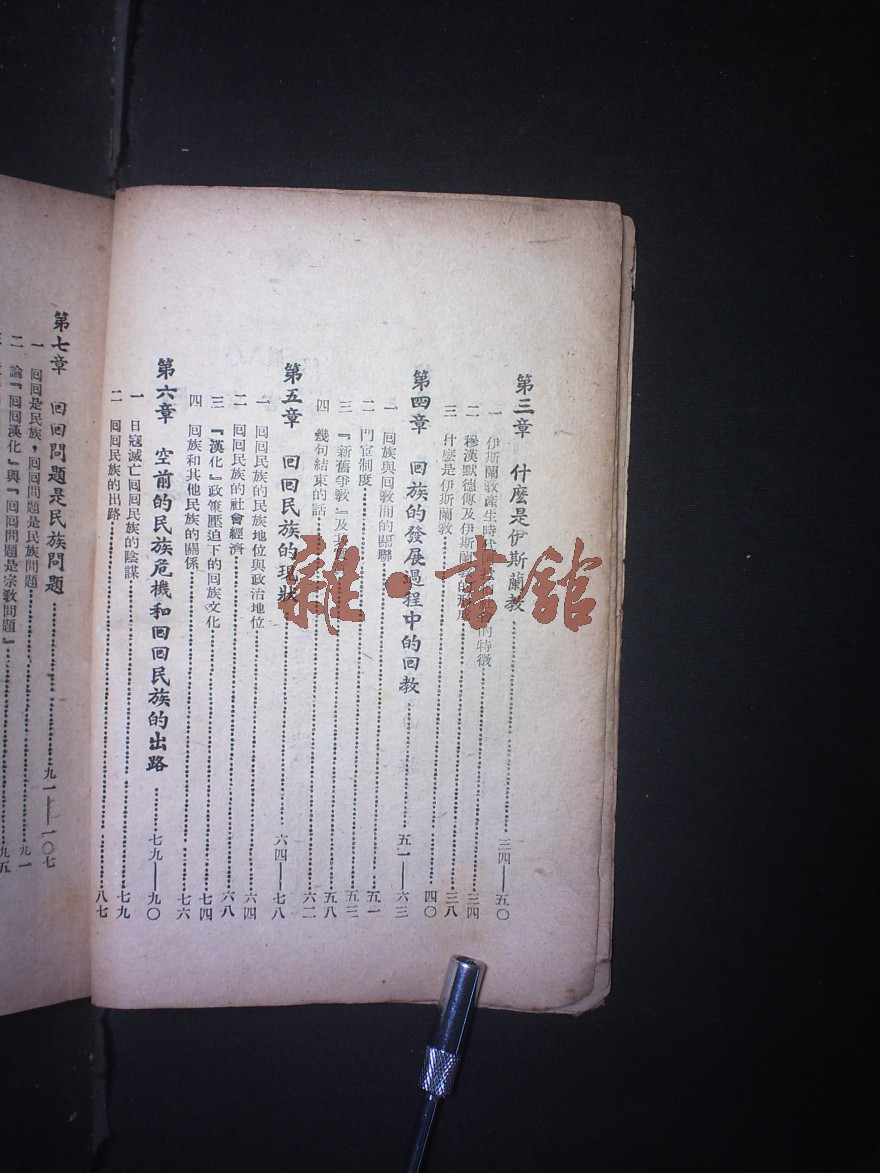 第三章 什麼是伊斯蘭教……三四——五〇
一 伊斯蘭教產生時 的特徵……三四
二 穆漢默德傳及伊斯蘭教的 ……三八
三 什麼是伊斯蘭教……四〇
第四章 回族的發展過程中的回教……五一——六三
一 回族與回教間的關聯……五一
二 門宦制度……五三
三 『新舊爭教』及 ……五八
四 幾句結束的話……六二
第五章 回回民族的現狀……六四——七八
一 回回民族的民族地位與政治地位……六四
二 回回民族的社會經濟……六八
三 『漢化』政策壓迫下的回族文化……七四
四 回族和其他民族的關係……七六
第六章 空前的民族危機和回回民族的出路……七九——九〇
一 日寇滅亡回回民族的陰謀……七九
二 回回民族的出路……八七
第七章 回回問題是民族問題……九一——一〇七
一 回回是民族,回回問題是民族問題……九一
二 論『回回漢化』與『回回問題是宗教問題』……九五
雜·書館